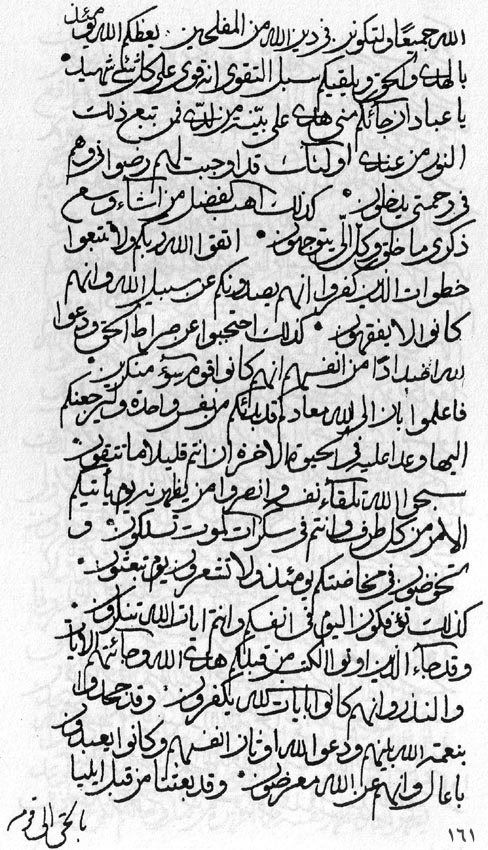 الله جميعًا ولتكونن فى دين الله من المفلحين يعظكم الله يومئذ
بالهدى والحق ويلقيكم سبل التقوى انه قوى على كل شئ شهيد
يا عباد ان جائكم منى هدى على بينة من لدى فمن تبع ذلك
النور من عندى اولئك قد اوجبت لهم رضوانى وهم
فى رحمتى يدخلون كذلك اهب لفضل من اشاء وسع
ذكرى ما خلق وكل الى يتوجهون اتقوا الله ربكم ولا تتبعوا
خطوات الذين كفروا انهم يصدونكم عن سبيل الله وانهم
كانوا لا يفقهون كذلك احتجبوا عن صراط الحق ودعوا
لله اضدادًا من انفسهم انهم كانوا قوم سوء منكرين
فاعلموا بان الى الله معادكم قد بدئكم من نفس واحدة وليرجعنكم
اليها وعدا عليه فى الحيوة الاخرة ان انتم قليلا ما تتقون
سيجى الله تلقاء نفسه وانصروا من يظهر نه يوم يأتيكم
الامر من كل طرف وانتم فى سكرات الموت تسلكون و
تخوضون فى مخاضتكم يومئذ ولا تشعرون يوم تبعثون
كذلك تؤفكون اليوم فى انفسكم وانتم ايات الله تنكرون
وقد جاء الذين اوتوا الكتب من قبلكم هدى الله وجائتهم الايات
والنذر وانهم كانوا بايات الله يكفرون وقد جحدوا
بنعمة الله عليهم ودعوا لله اوثان انفسهم وكانوا يعبدون
باعال وانهم عن الله معرضون وقد بعثنا من قبل ايليا
بالحق الى قوم
١٦١